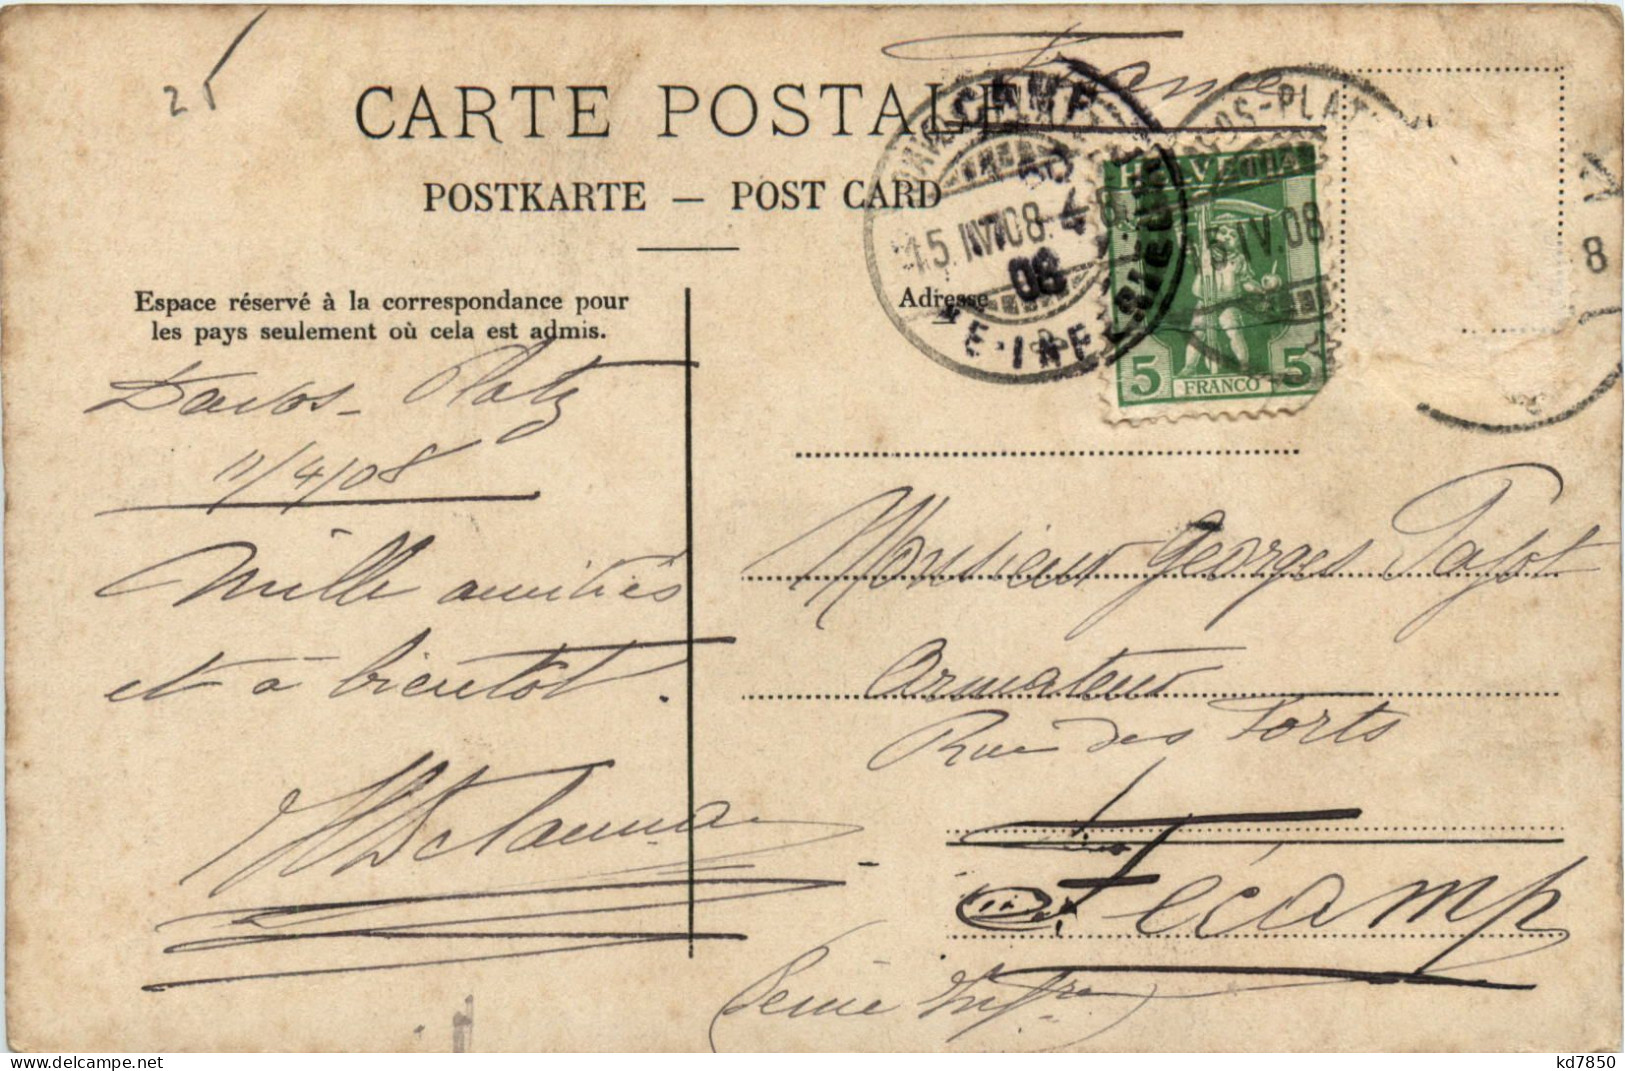 25
France
CARTE POSTALE
POSTKARTE — POST CARD
Espace réservé à la correspondance pour
les pays seulement où cela est admis.
Adresse
HELVETIA
5 FRANCO 5
15.IV.08
15.IV.08
08
8
Davos-Platz
11/4/08
Mille amitiés
et à bientôt.
Monsieur Georges Pajot
Armateur
Rue des Forts
Fécamp
(Seine Infre)
kd7850